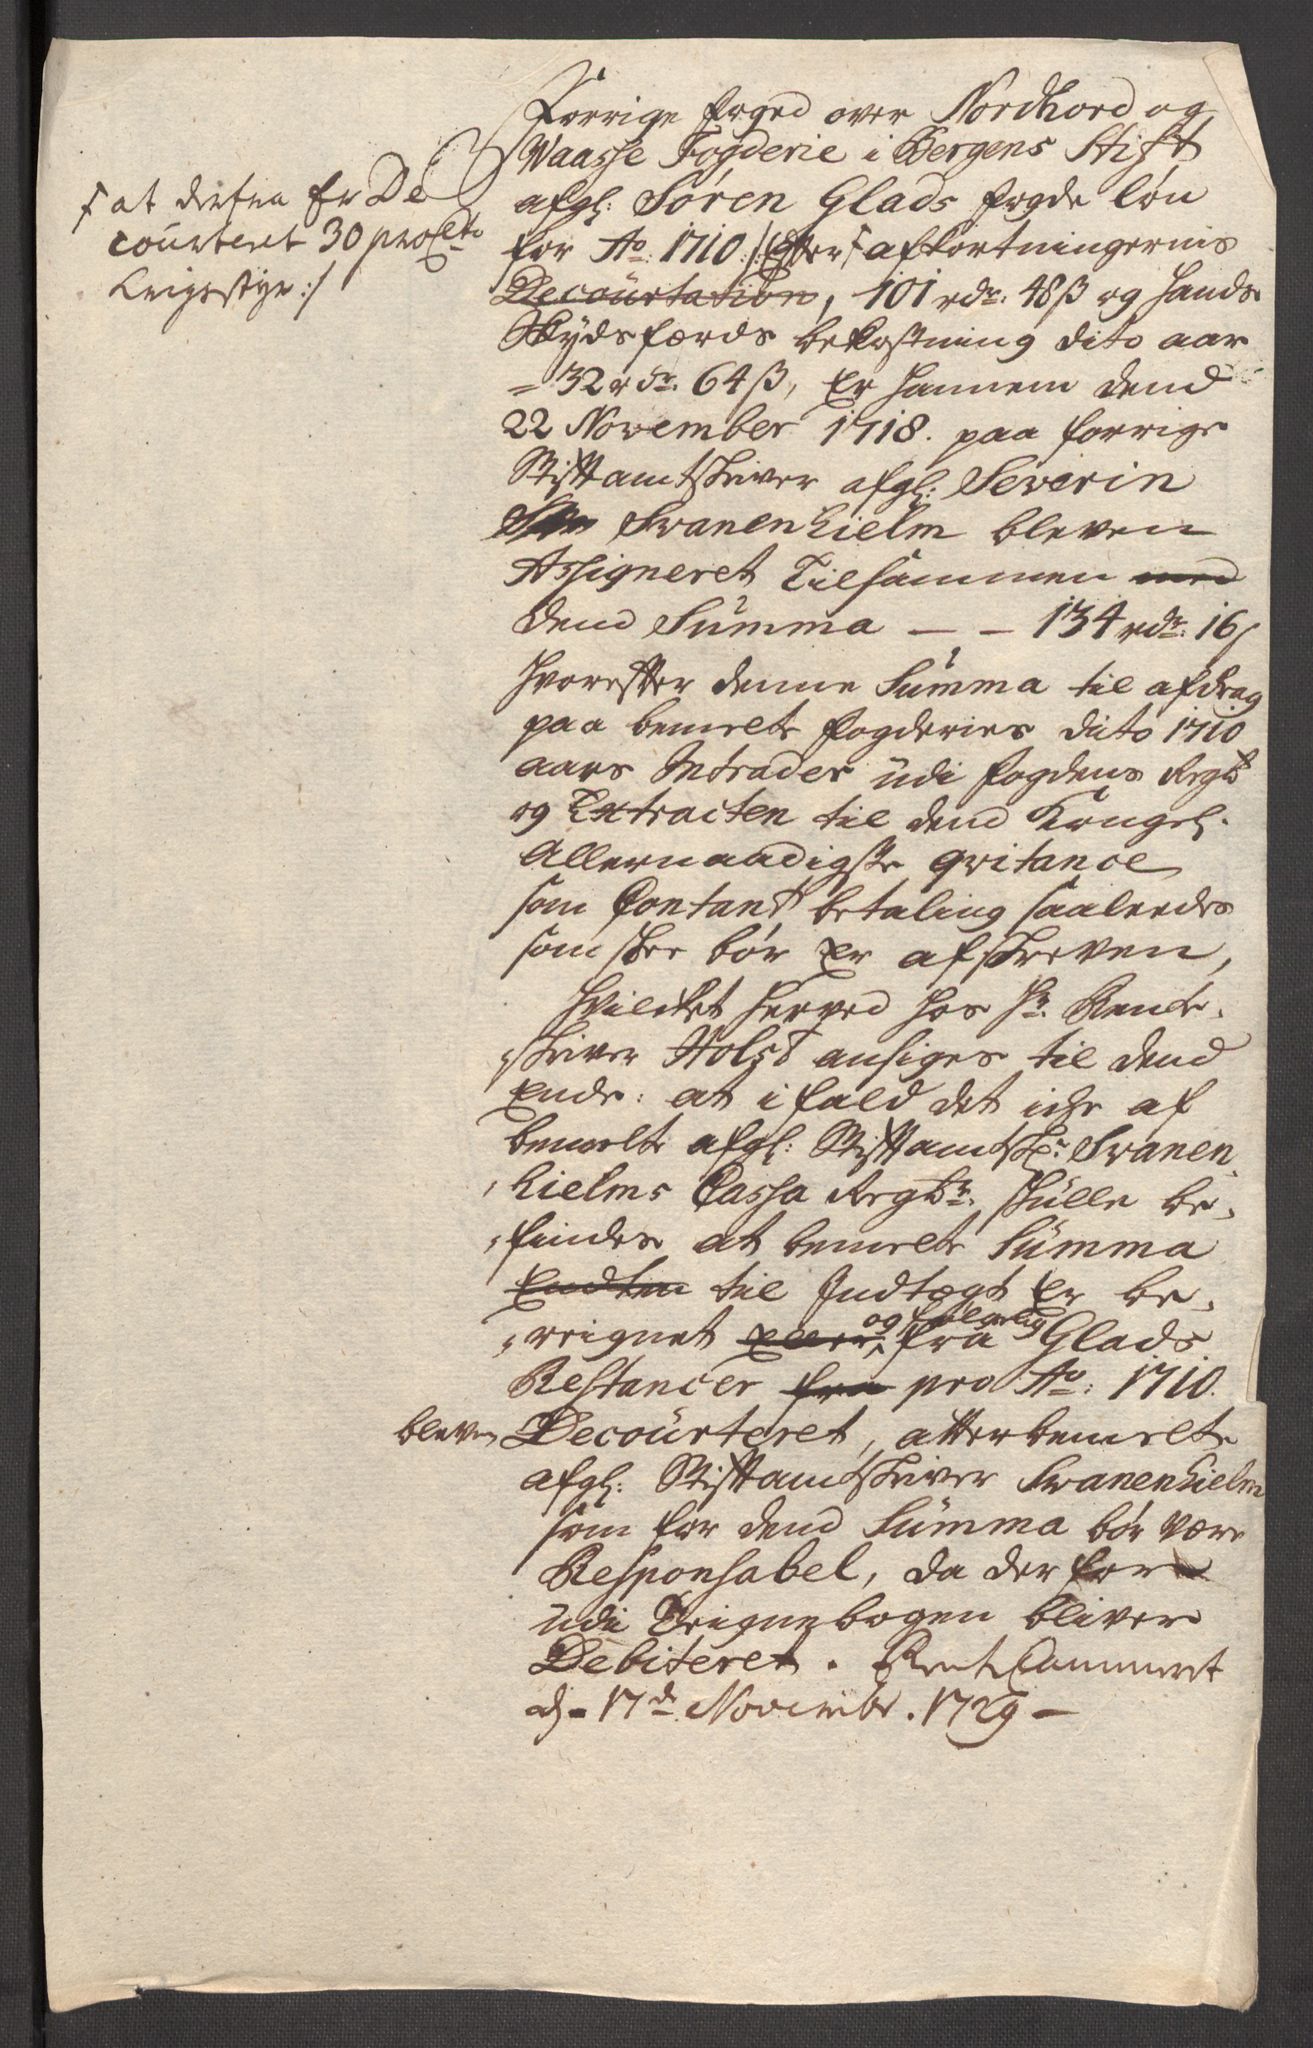 Forrige foged over Nordhord og
Waasse Fogderie i Bergens Stift
afgl: Søren Glads fogde løn
for Ao: 1710 /: Efter afkortningernis
at derfra Er De
courteret 30 proCto
krigsstyr :/
Decourtation, 101 rdr: 48 ß og hands
Skydsfærds bekostning dito aar
= 32 rdr: 64 ß, Er hannem dend
22 November 1718. paa forrige
Stiftamtskriver afgl: Severin
Svanenhielm bleven
Assigneret Tilsammen med
dend Summa — — 134 rdr: 16 ß
hvorefter denne Summa til afdrag
paa bemelte fogderies dito 1710
aars Intrader udi fogdens Regsk
og Extracten til dend Kongel.
Allernaadigste qvitance
som Contant betaling saaleedes
som skee bør Er afskreven,
hvilcket herved hos Hr. Rente-
skriver Holst ansiges til dend
Ende: at ifald det icke af
bemelte afgl: Stiftamtskr: Svanen-
hielms Cassa Regskr. skulle be-
findes at bemelte Summa
Endten til Indtægt Er be-
reignet eller og følgelig fra Glads
Restancer fra pro Ao: 1710.
bleven Decourteret, atter bemelte
afgl: Stiftamtskriver Svanenhielm
som for dend Summa bør være
Responsabel, da derfor
udi Reignebogen bliver
Debiteret. RenteCammeret
d. 17de Novembr. 1729 —